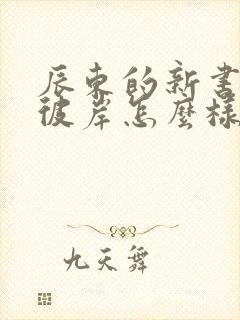 辰東的新書
彼岸怎麼樣
九天舞